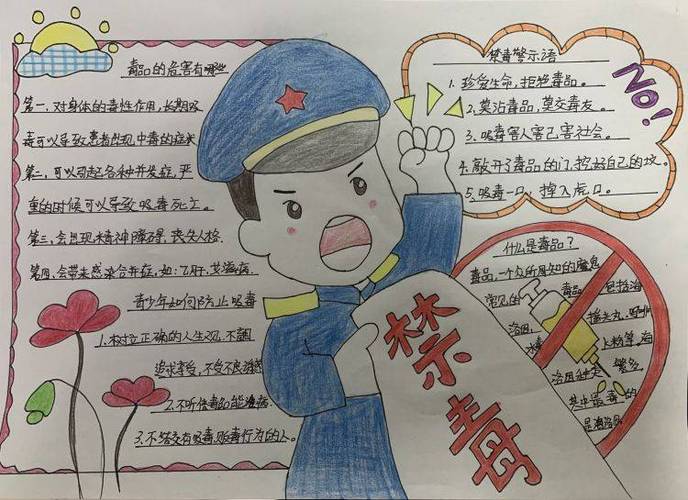 毒品的危害有哪些
第一、对身体的毒性作用,长期吸
毒可以导致患者出现中毒的症状
第二、可以引起各种并发症,严
重的时候可以导致吸毒死亡。
第三、会出现精神障碍,丧失人格.
第四、会带来感染合并症,如:乙肝,艾滋病.
青少年如何防止吸毒
1.树立正确的人生观,不
追求享受,不受不良
2.不听信毒品能治病.
3.不结交有吸毒、贩毒行为的人。
禁毒
禁毒警示语
1.珍爱生命,拒绝毒品。
2.莫沾毒品,莫交毒友。
3.吸毒害人害己害社会。
4.敲开了毒品的门,挖好自己的坟。
5.吸毒一口,掉入虎口。
NO!
什么是毒品?
毒品,一个众所周知的魔鬼
常见的毒品包括冶
浴因,摇头丸,
水 上粉等,
种类繁多
其中最毒的
是